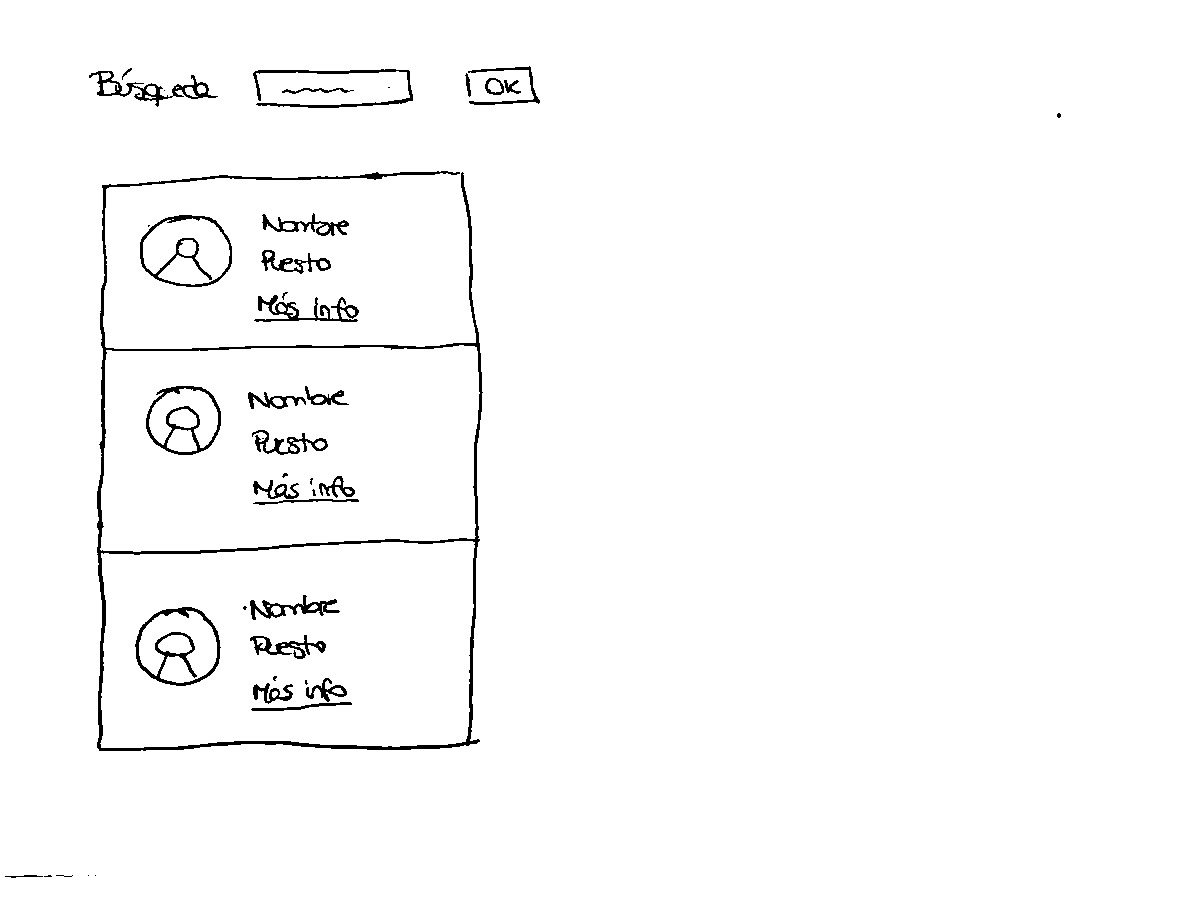 Búsqueda OK
Nombre
Puesto
Más info
Nombre
Puesto
Más info
Nombre
Puesto
Más info